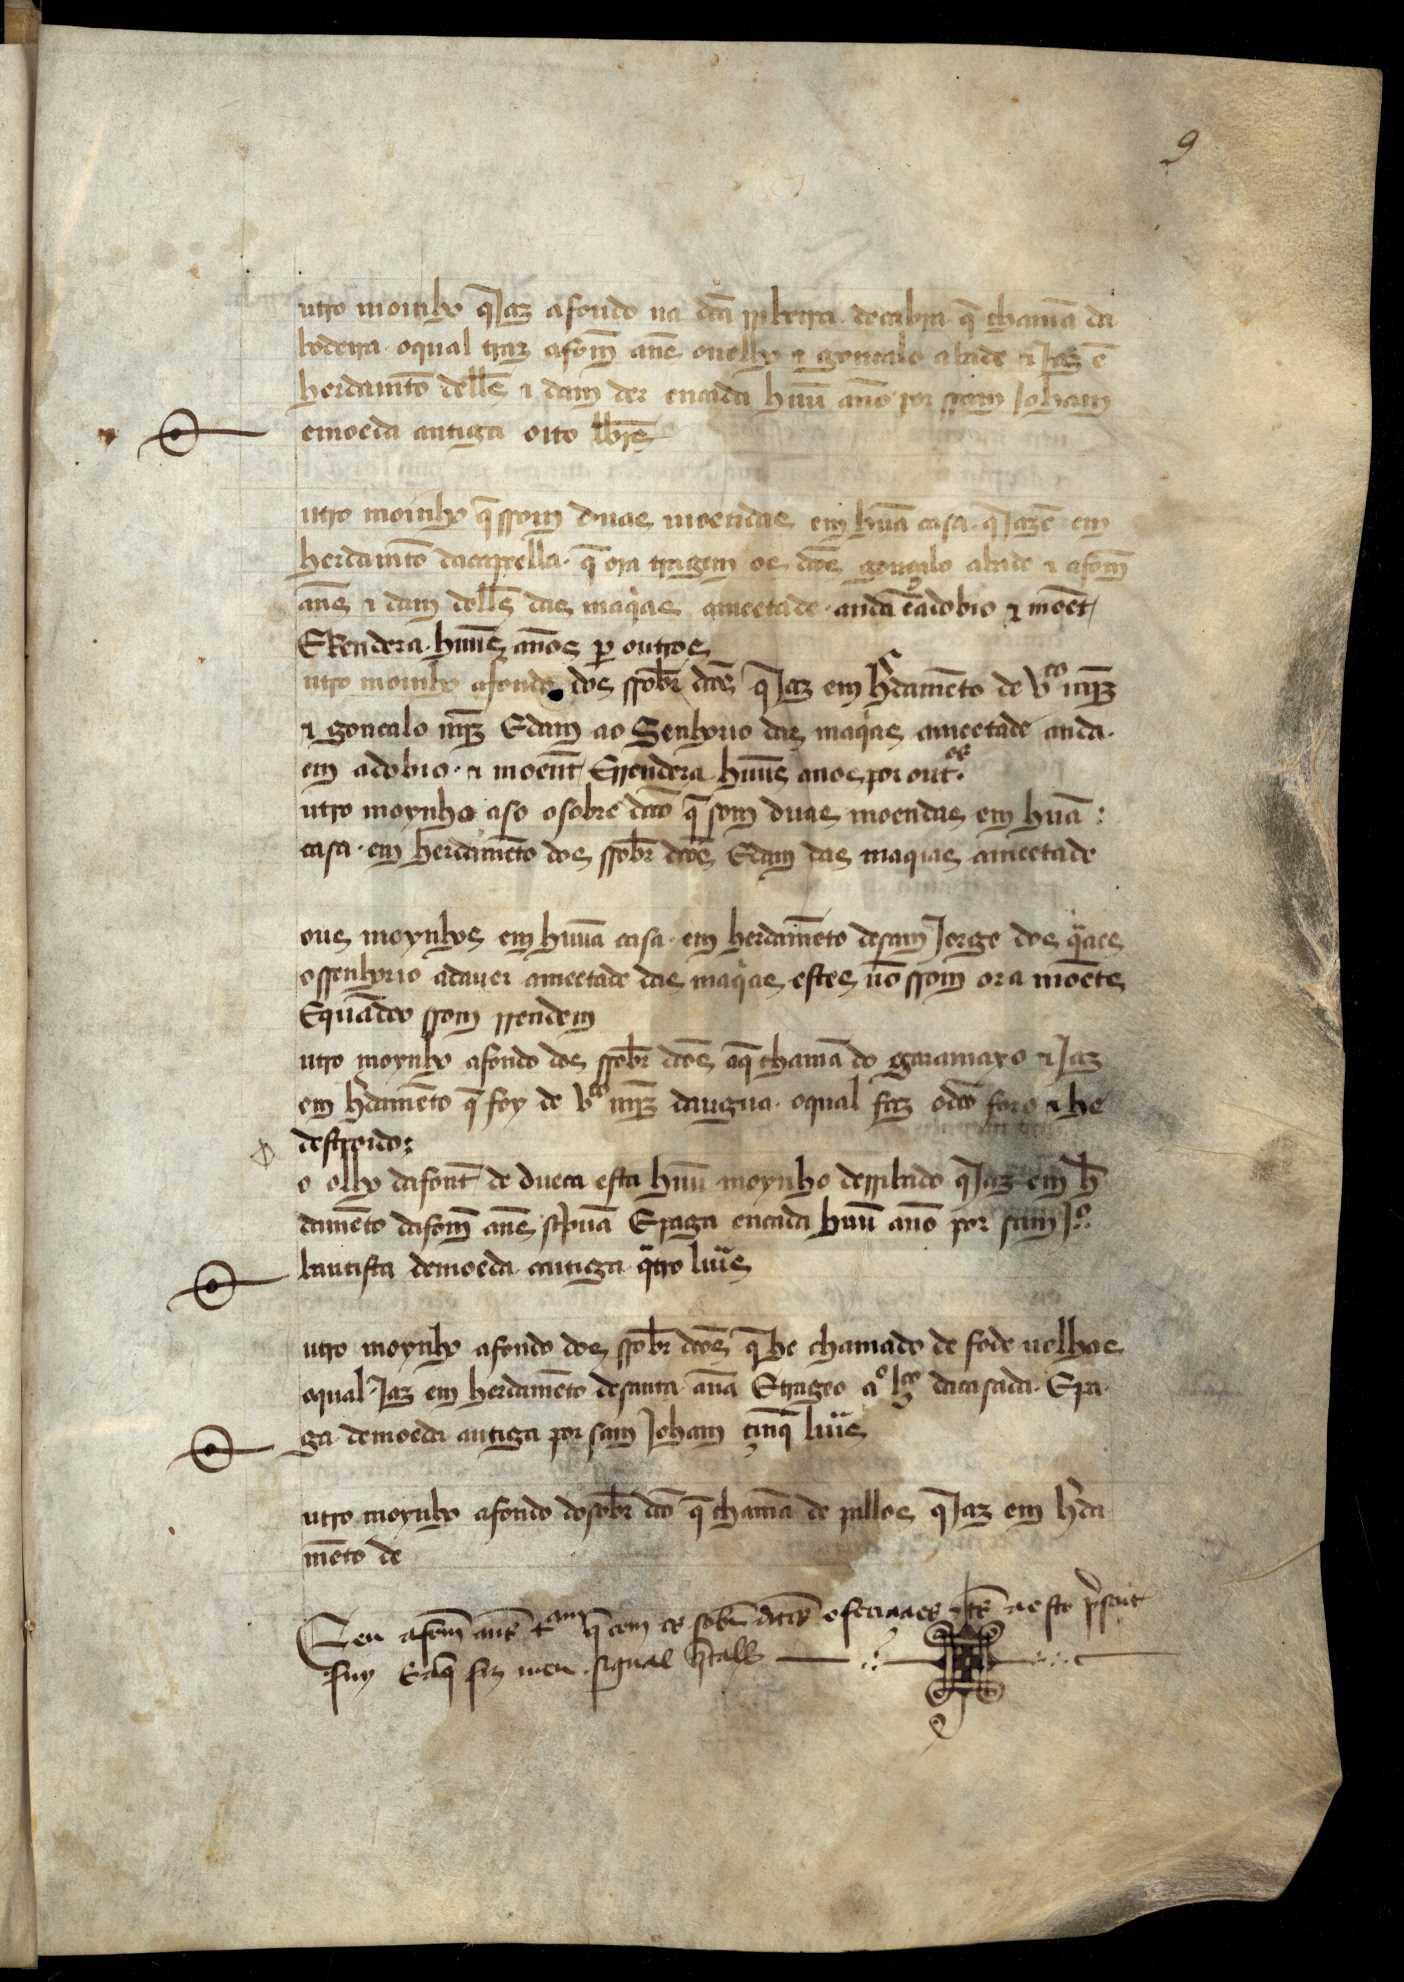 9
utro moinho q̃ Jaz afondo na dc̃a rribeira decabra q̃ chamã da
lodeira oqual traz afom̃ anẽ ouelho ⁊ goncalo abade ⁊ Jaz ẽ
herdamẽto dell̃s ⁊ dam der encada huũ ano por ssam Joham
emoeda antiga oito lbr̃s
utro moinho q̃ ssom duas moendas em hũa casa q̃ Jazẽ em
herdamẽto dacapella q̃ ora tragem os dc̃os gonçalo abade ⁊ afom̃
an̄s ⁊ dam dell̃s das maq̃as ameetade anda ẽadobio ⁊ moẽt
E Rendera huũs anõs per outros
utro moinho afondo dos ssobr̃ dc̃os q̃ Jaz em hr̃damẽto de vco mz̃
⁊ goncalo mz̃ Edam ao Senhorio das maq̃as ameetade anda
em adobio ⁊ moent Errendera huũs anos por outos
utro moynho aso osobre dcõ q̃ som duas moendas em huã
casa em herdamẽto dos ssobr̃ dc̃os Edam das maquias ameetade
ous moynhos em huũa casa em herdamẽto desam Jorge dos q̃aes
ossenhorio adauer ameetade das maq̃as estes nõ ssom ora moẽtes
Equãdo ssom rrendem
utro moynho afondo dos ssobr̃ dc̃os aq̃ chamã do garamaxo ⁊ Jaz
em hr̃damẽto q̃ foy de vco mz̃ daugua oqual faz odc̃o foro ⁊ he
destroido
o olho dafont de dueca esta huũ moynho derribado q̃ Jaz em hr̃
damẽto dafom̃ anẽs scpuã Epaga encada huũ anõ por sam Jo
bautista demoeda antiga q̃tro liur̃s
utro moynho afondo dos ssobr̃ dc̃os q̃ he chamado de fode uelhas
oqual Jaz em herdamẽto desanta anã Etrageo ao lco dacasada Epa
ga demoeda antiga por sam Joham çinq̃ liur̃s
utro moynho afondo dosobr̃ dc̃o q̃ chamã de pallos q̃ Jaz em hr̃da
mẽto de
E eu afom̃ an̄s tam q̃ com os sobr̃ ditos ofeciaaes ts̃ aesto p̃sent
fuy Eaq̃ fiz meu signal q̃ talhe